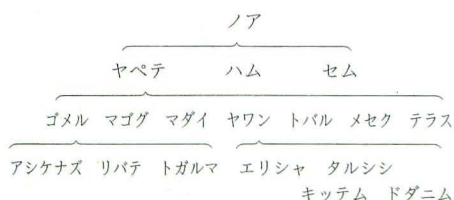 ノア
ヤペテ ハム セム
ゴメル マゴグ マダイ ヤワン トバル メセク テラス
アシケナズ リバテ トガルマ エリシャ タルシシ
キッテム ドダニム